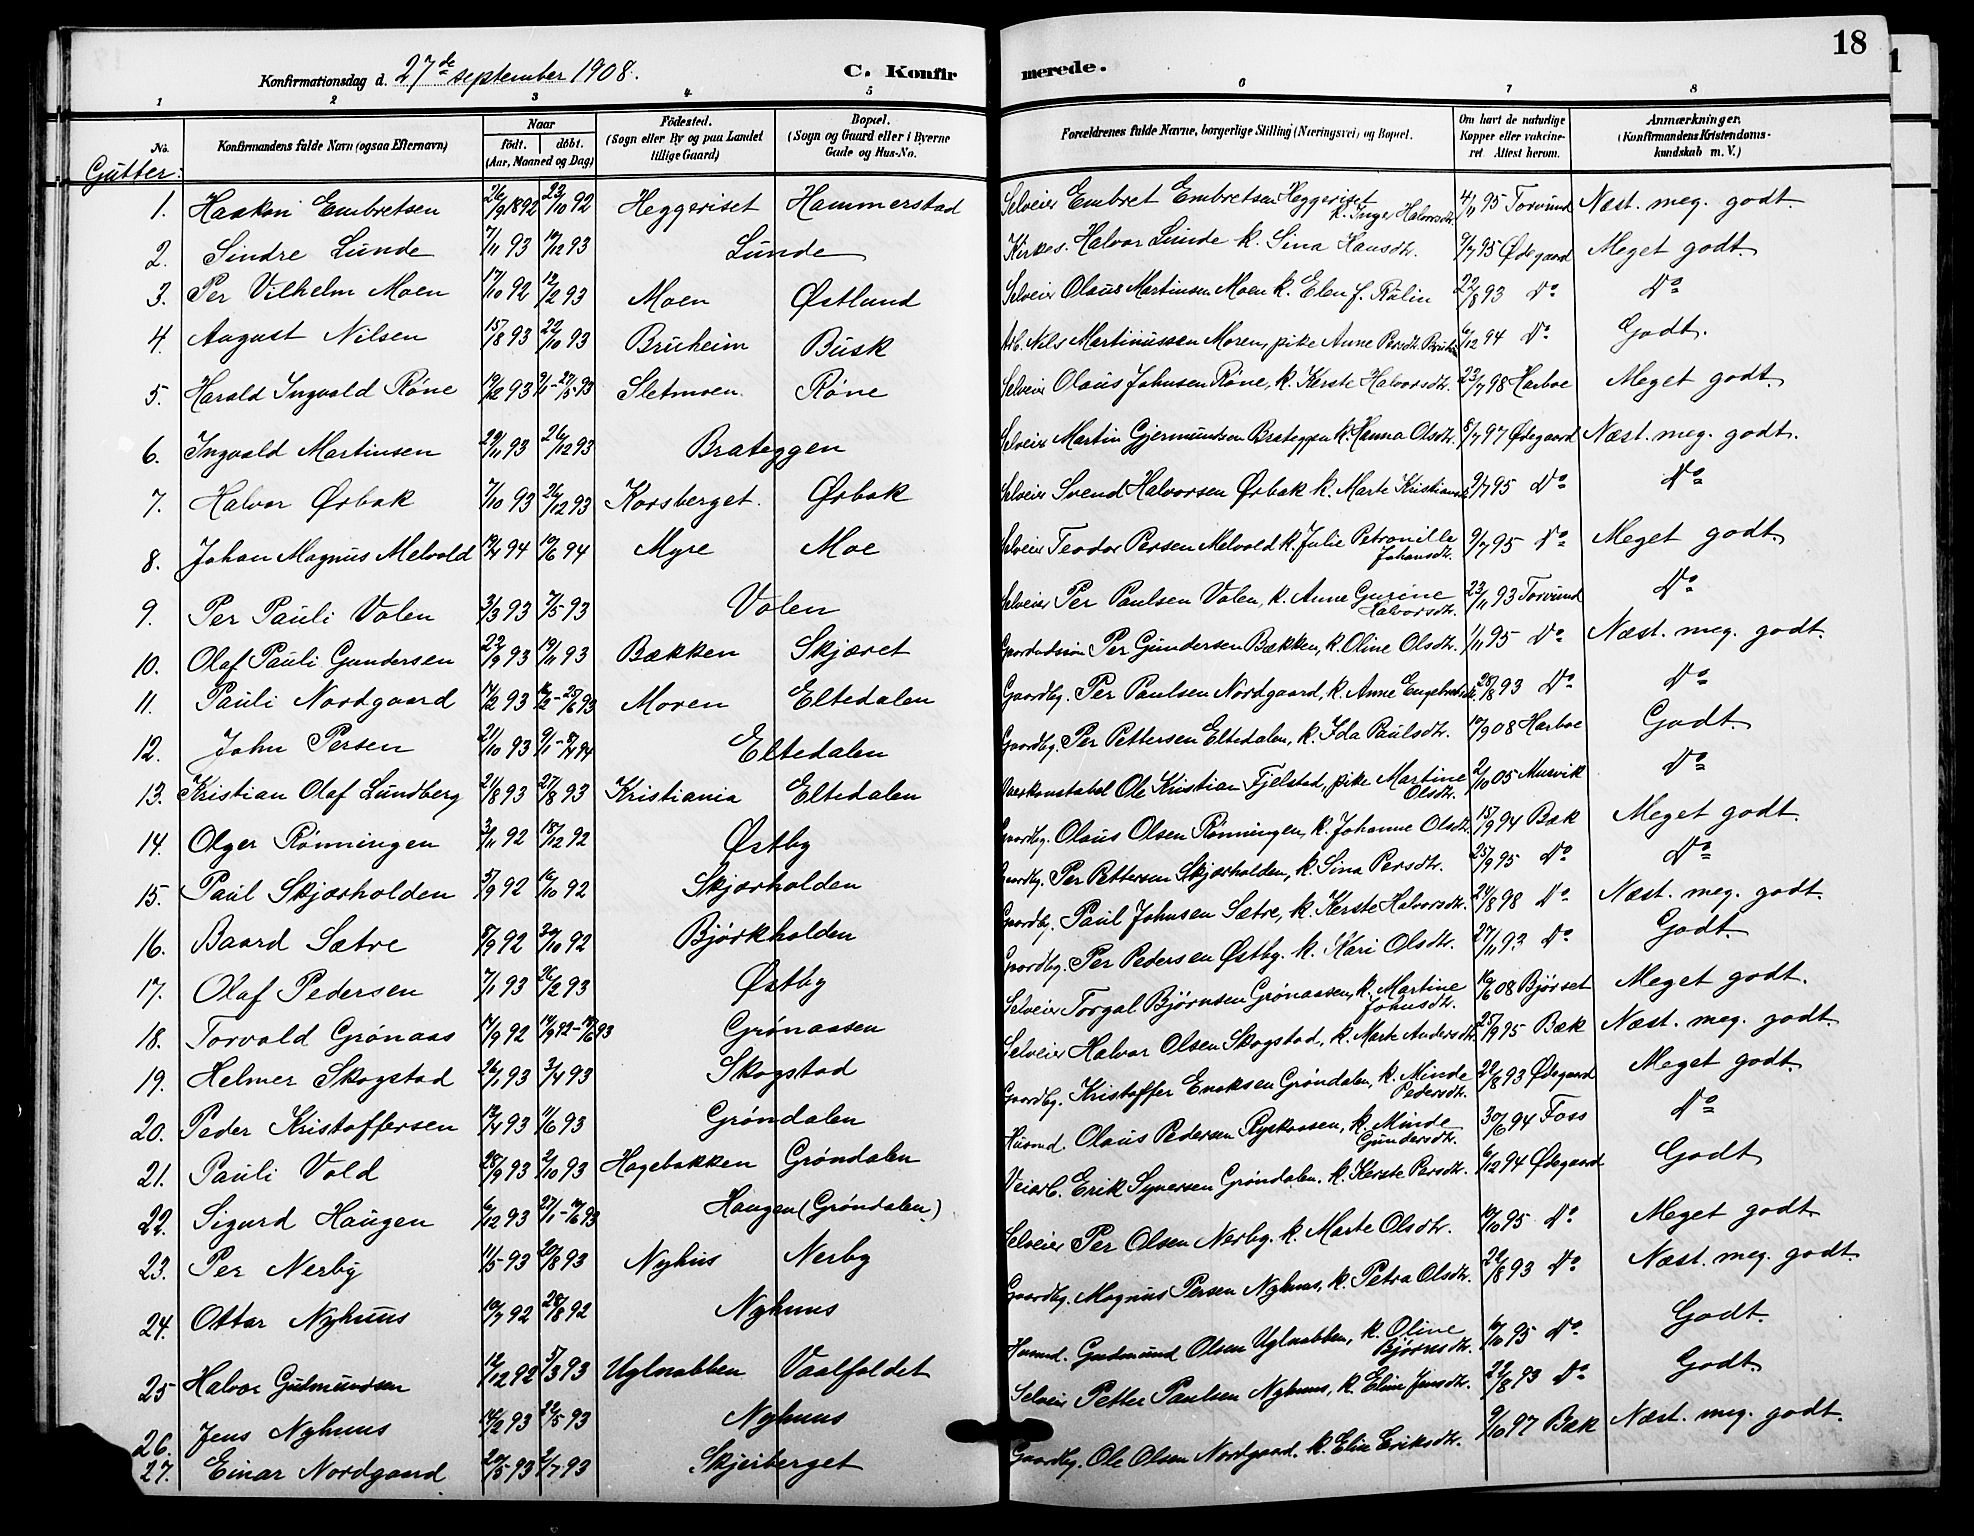 18
Konfirmationsdag d. 27de september 1908.
C. Konfirmerede.
1 2 3 4 5 6 7 8
No. Konfirmandens fulde Navn (ogsaa Efternavn) Naar født. døbt. (Aar, Maaned og Dag) Fødested. (Sogn eller By og paa Landet tillige Gaard) Bopæl. (Sogn og Gaard eller i Byerne Gade og Hus-No. Forældrenes fulde Navne, borgerlige Stilling (Næringsvei) og Bopæl. Om havt de naturlige Kopper eller vaccineret Attest herom. Anmærkninger. (Konfirmandens Kristendomskundskab m. V.)
Gutter:
1. Haakon Embretsen 26/9 1892 23/10 92 Heggeriset Hammerstad Selveier Embret Embretsen Heggeriset k. Inger Halvorsdtr. 4/11 95 Torvund Næst. meg. godt.
2. Sindre Lunde 7/11 93 19/12 93 Lunde Kirkes. Halvor Lunde k. Sina Hansdtr. 9/7 95 Ødegaard Meget godt.
3. Per Vilhelm Moen 17/10 92 12/2 93 Moen Østlund Selveier Olaus Martinsen Moen k. Elen f. Rålin 22/8 93 Do Do
4. August Nilsen 15/8 93 22/10 93 Bruheim Busk Arb. Nils Martinussen Moren, pike Anne Persdtr. 6/12 94 Do Godt.
5. Harald Ingvald Røne 19/2 93 Sletmoen Røne Selveier Olaus Johnsen Røne, k. Kerste Halvorsdtr. 23/7 98 Harboe Meget godt.
6. Ingvald Martinsen 29/11 93 26/12 93 Brateggen Selveier Martin Gjermundsen Brateggen k. Hanna Olsdtr. 8/7 97 Ødegaard Næst. meg. godt.
7. Halvor Ørbak 7/10 93 26/12 93 Korsberget Ørbak Selveier Svend Halvorsen Ørbak k. Marte 9/7 95 Do Do
8. Johan Magnus Melvold 19/4 94 10/6 94 Myre Moe Selveier Teodor Persen Melvold k. Julie Petronille Johansdtr. 9/7 95 Do Meget godt.
9. Per Pauli Volen 3/3 93 7/5 93 Volen Selveier Per Paulsen Volen, k. Anne Gurine Halvorsdtr. 23/11 93 Torvund Do
10. Olaf Pauli Gundersen 22/9 93 19/11 93 Bækken Skjæret Per Gundersen Bækken, k. Oline Olsdtr. 1/11 95 Do Næst. meg. godt.
11. Pauli Nordgaard 17/2 93 Moren Eltedalen Gaardbg. Per Paulsen Nordgaard, k. Anne 28/8 93 Do Do
12. John Persen 21/10 93 Eltedalen Gaardbg. Per Pettersen Eltedalen, k. Ida Paulsdtr. 10/9 08 Harboe Godt.
13. Kristian Olaf Lundberg 21/8 93 27/8 93 Kristiania Eltedalen Ole Kristian Fjelstad, pike Martine Olsdtr. 2/10 05 Musvik Do
14. Olger Rønningen 3/11 92 18/12 92 Østby Gaardbg. Olaus Olsen Rønningen, k. Johanne Olsdtr. 15/9 94 Bæk Meget godt.
15. Paul Skjærholden 5/9 92 16/10 92 Skjærholden Gaardbg. Per Pettersen Skjærholden, k. Sina Persdtr. 25/9 95 Do Do
16. Baard Sætre 8/9 92 30/10 92 Bjørkholden Gaardbg. Paul Johnsen Sætre, k. Kerste Halvorsdtr. 24/8 98 Do Næst. meg. godt.
17. Olaf Pedersen 7/1 93 26/2 93 Østby Gaardbg. Per Pedersen Østby. k. Kari Olsdtr. 27/11 93 Do Godt.
18. Torvald Grønaas 17/9 92 Grønaasen Selveier Torgal Bjørnsen Grønaasen, k. Martine Johnsdtr. 16/6 08 Bjørset Meget godt.
19. Helmer Skogstad 26/1 93 3/4 93 Skogstad Selveier Halvor Olsen Skogstad, k. Marte Andersdtr. 25/9 95 Bæk Næst. meg. godt.
20. Peder Kristoffersen 13/4 93 11/6 93 Grøndalen Gaardbg. Kristoffer Enoksen Grøndalen, k. Minde Pedersdtr. 22/8 93 Ødegaard Meget godt.
21. Pauli Vold 28/9 93 2/10 93 Hagebakken Grøndalen Husmd. Olaus Pedersen Ryskaasen, k. Minde Gundersdtr. 30/6 94 Foss Do
22. Sigurd Haugen 6/12 93 Haugen (Grøndalen) Veiarb. Erik Syversen Grøndalen. k. Kerste Persdtr. 6/12 94 Ødegaard Godt
23. Per Nerby 11/5 93 20/8 93 Nyhus Nerby Selveier Per Olsen Nerby. k. Marte Olsdtr. 10/10 95 Do Meget godt
24. Ottar Nyhuus 10/7 92 28/8 92 Nyhuus Gaardbg. Magnus Persen Nyhuus, k. Petra Olsdtr. 22/8 93 Do Næst. meg. godt.
25 Halvor Gudmundsen 12/12 92 5/3 93 Uglnabben Vaalfaldet Husmd. Gudmund Olsen Uglnabben, k. Oline Bjørnsdtr. 6/10 95 Do Godt.
26. Jens Nyhuus 14/2 93 22/5 93 Nyhuus Selveier Petter Paulsen Nyhuus, k. Eline Jensdtr. 22/8 93 Do Godt.
27. Einar Nordgaard 20/5 93 2/7 93 Skjeiberget Gaardbg. Ole Olsen Nordgaard. k. Elin Eriksdtr. 9/10 97 Bæk Næst. meg. godt.